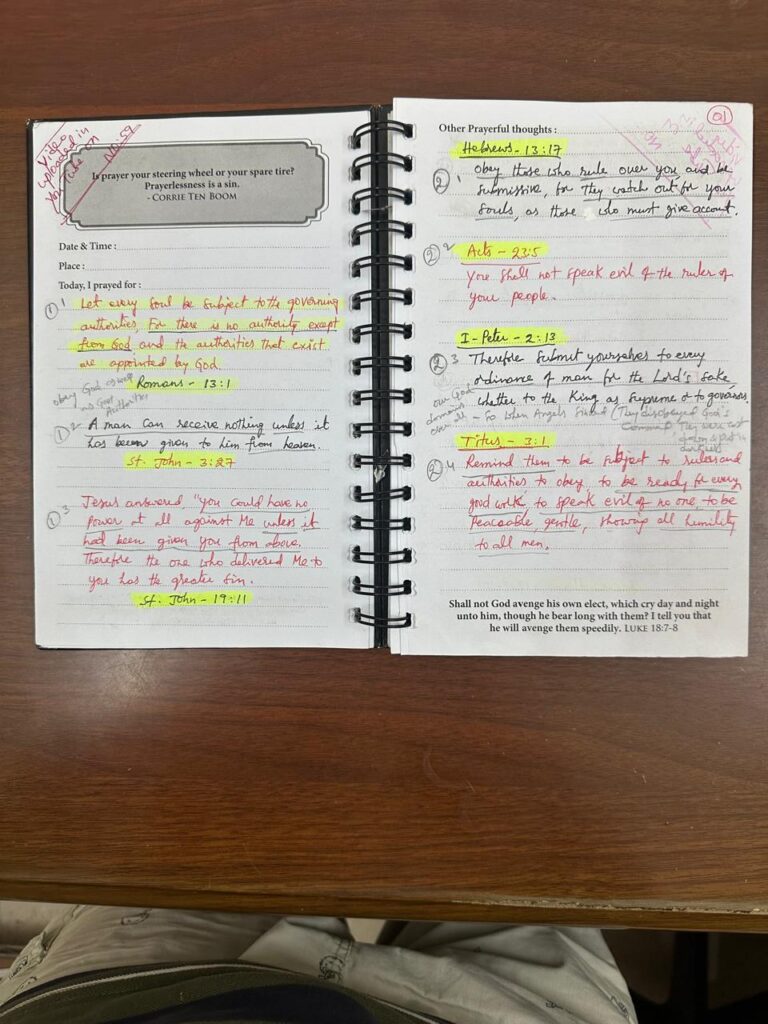 Video
uploaded in
You Tube on
NO: 59
Is prayer your steering wheel or your spare tire?
Prayerlessness is a sin.
- CORRIE TEN BOOM
Date & Time :
Place :
Today, I prayed for :
① 1 Let every soul be subject to the governing
authorities, For there is no authority except
from God and the authorities that exist
are appointed by God.
Romans - 13:1
obey God
authorities
① 2 A man can receive nothing unless it
has been given to him from heaven.
St. John - 3:27
① 3 Jesus answered, "you could have no
power at all against Me unless it
had been given you from above,
Therefore the one who delivered Me to
you has the greater sin.
St. John - 19:11
01
Other Prayerful thoughts :
Hebrews - 13:17
② 1 Obey those who rule over you and be
submissive, for they watch out for your
souls, as those who must give account.
② 2 Acts - 23:5
You shall not speak evil of the ruler of
your people.
I - Peter - 2:13
② 3 Therefore submit yourselves to every
ordinance of man for the Lord's sake,
whether to the King as supreme or to governors.
our God
over all - So when Angels sinned (They disobeyed God's
Command They were cast
down
Titus - 3:1
② 4 Remind them to be subject to rulers and
authorities to obey, to be ready for every
good work, to speak evil of no one, to be
Peaceable, gentle, showing all humility
to all men.
Shall not God avenge his own elect, which cry day and night
unto him, though he bear long with them? I tell you that
he will avenge them speedily. LUKE 18:7-8